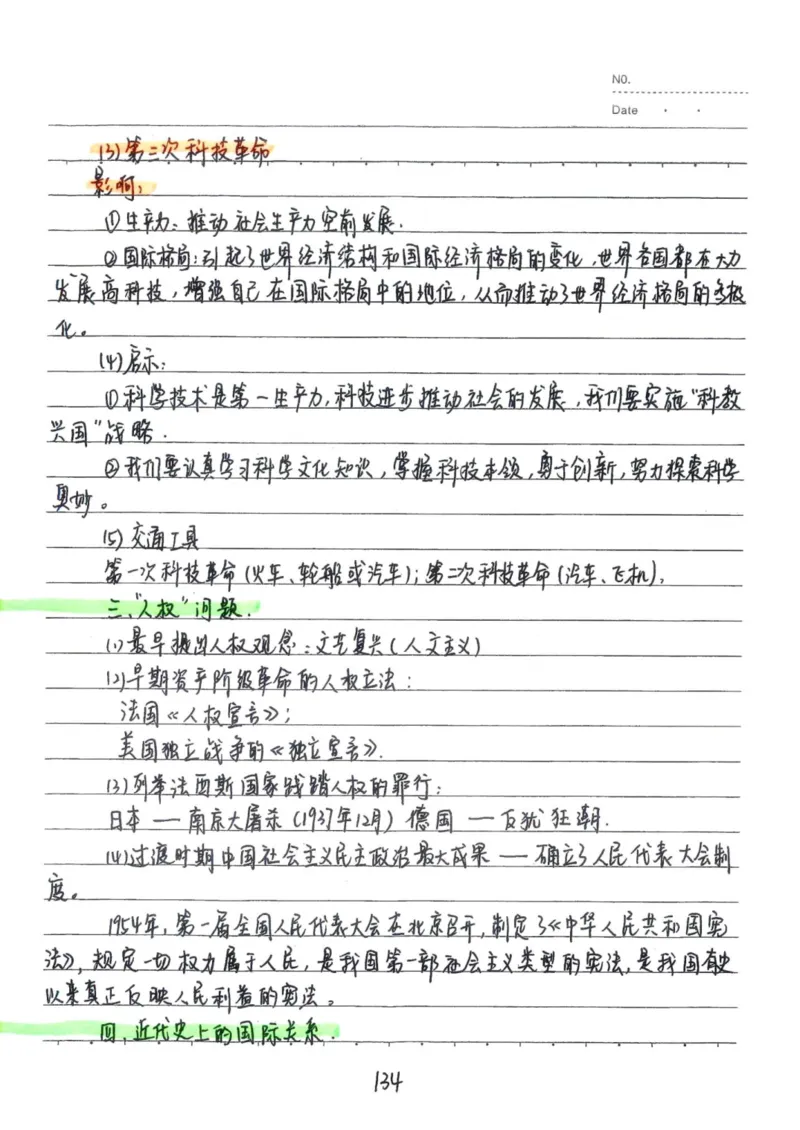 NO.
Date
(3)第三次科技革命
影响:
①生产力:推动社会生产力空前发展.
②国际格局:引起了世界经济结构和国际经济格局的变化,世界各国都在大力
发展高科技,增强自己在国际格局中的地位,从而推动了世界经济格局的多极
化。
(4)启示:
①科学技术是第一生产力,科技进步推动社会的发展,我们要实施“科教
兴国”战略.
②我们要认真学习科学文化知识,掌握科技本领,勇于创新,努力探索科学
奥妙。
(5)交通工具
第一次科技革命(火车、轮船或汽车);第二次科技革命(汽车、飞机).
三、“人权”问题.
(1)最早提出人权观念:文艺复兴(人文主义)
(2)早期资产阶级革命的人权立法:
法国《人权宣言》;
美国独立战争的《独立宣言》.
(3)列举法西斯国家践踏人权的罪行:
日本—南京大屠杀(1937年12月) 德国—反犹狂潮.
(4)过渡时期中国社会主义民主政治最大成果—确立了人民代表大会制
度。
1954年,第一届全国人民代表大会在北京召开,制定了《中华人民共和国宪
法》,规定一切权力属于人民,是我国第一部社会主义类型的宪法,是我国有史
以来真正反映人民利益的宪法。
四、近代史上的国际关系.
134